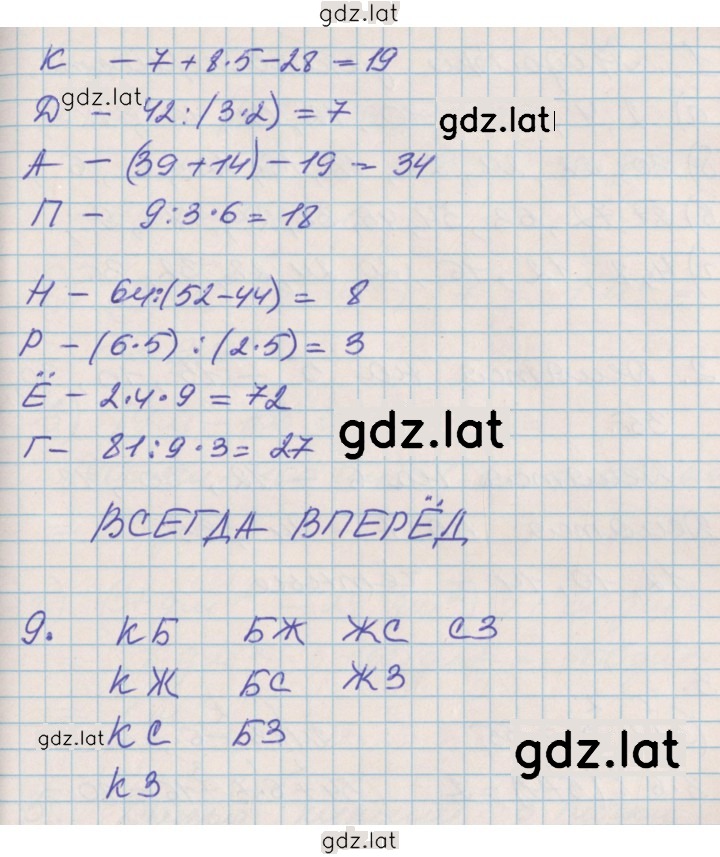 gdz.lat
К - 7 + 8·5 - 28 = 19
gdz.lat
Д - 42 : (3·2) = 7
gdz.lat
А - (39 + 14) - 19 = 34
П - 9 : 3 · 6 = 18
Н - 64 : (52 - 44) = 8
Р - (6·5) : (2·5) = 3
Ё - 2·4·9 = 72
gdz.lat
Г - 81 : 9 · 3 = 27
ВСЕГДА ВПЕРЁД
9. КБ БЖ ЖС СЗ
КЖ БС ЖЗ
gdz.lat КС БЗ
gdz.lat
КЗ
gdz.lat